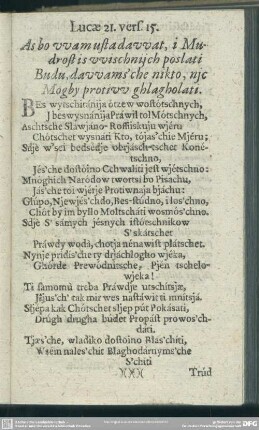 Lucæ 21. vers. 15.
As bo vvam usta davvat, i Mu-
drost is vvischnijch poslati
Budu, davvams'che nikto, njc
Mogby protivv ghlagholati.
BEs wyischitánija ótzew wostótschnych,
J beswysnánija Práwil tolMótschnych,
Aschtsche Slawjáno-Rossiiskuju wjéru
Chótschet wysnati Kto, tójas'chie Mjéru;
Sdjè w'sei bedsédje obrjásch-tschet Konè-
tschno,
Jés'che dostóino Cchwalíti jest wjétschno:
Mnóghich Naródow twortsi bo Pisachu,
Jás'che toi wjérje Protiwnaja bjáchu:
Glúpo, Njewjés'chdo, Bes-stúdno, i los'chno,
Chót by im byllo Moltscháti wosmós'chno.
Sdje S' sámych jésnych istótschnikow
S'skátschet
Práwdy wodà, chotja nénawist plátschet.
Nynje pridís'che ty drjáchlogho wjéka,
Ghórde Prewódnitsche, Pjén tschelo-
wjeka!
Ti samomù treba Práwdje utschítsja,
Jéjus'ch' tak mir wes nastáwit ti mnítsja.
Sljepa kak Chótschet sljep pút Pokásati,
Drúgh drugha búdet Própast prowos'ch-
dáti.
Tjæs'che, wladiko dostóino Blas'chíti,
Wsém nales'chit Blaghodárnyms'che
S'chíti
)()()( Trúd